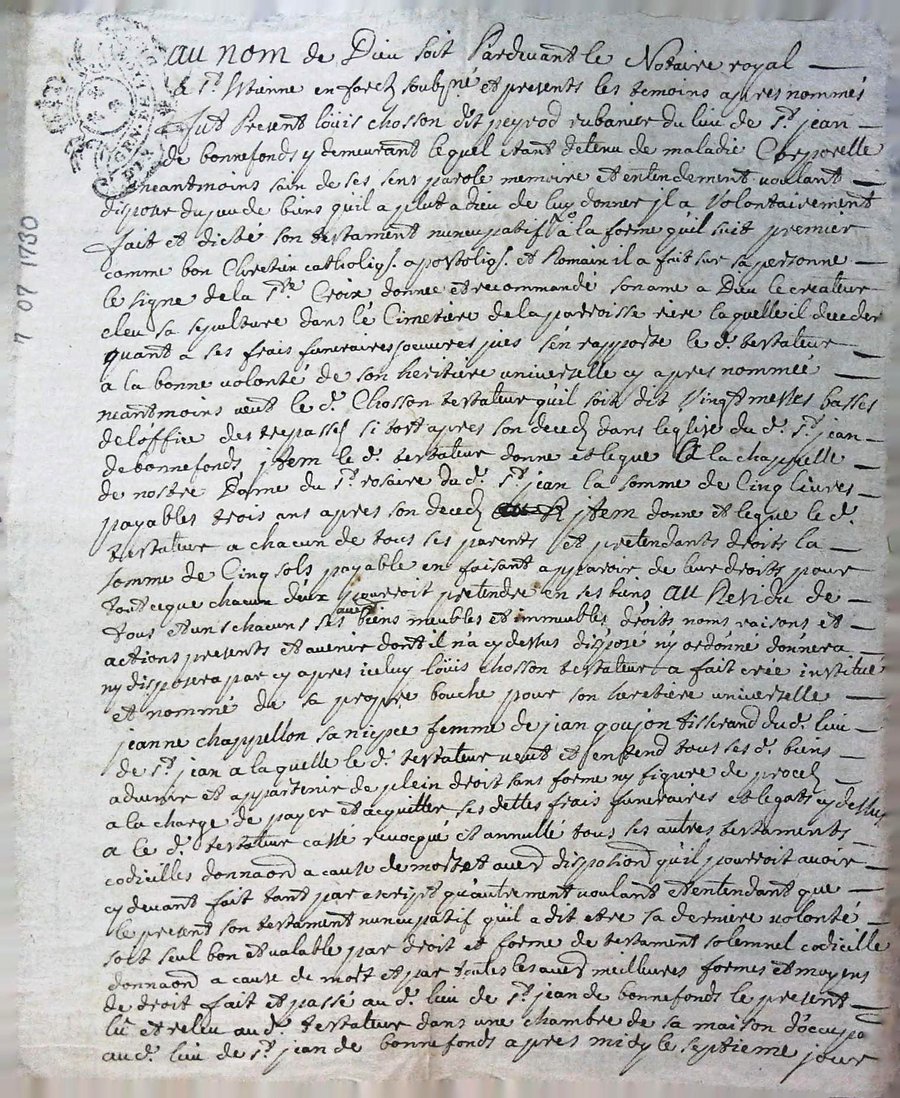 au nom de Dieu soit Pardevant le Notaire royal
a St Estienne en forez soubzné et presents les temoins apres nommés
fut Present loüis chosson dit peyrod rubanier du lieu de St jean
de bonnefonds y demeurant lequel etant detenu de maladie Corporelle
neantmoins sain de ses sens parole memoire et entendement voulant
disposer du peu de biens qu'il a plut a dieu de luy donner jl a Volontairement
fait et dicté son testament nuncupatif a la forme qu'il suit premier
comme bon Chretien catholiq. apostoliq. et Romain il a fait sur sa personne
le signe de la Ste Croix donnee et recommandé son ame a Dieu le createur
eleu sa sepulture dans le Cimetiere de la parroisse riere laquelle il decedera
quant a ses frais funeraires oeuvres pies s'en rapporte le d. testateur
a la bonne volonté de son heritiere universelle cy apres nommée
neantmoins veut le d. Chosson testateur qu'il soit dit Vingt messes basses
de l'office des trepassez si tost apres son decedz dans leglise du d. St jean
de bonnefonds jtem le d. testateur donne et legue a la chappelle
de nostre Dame du St rosaire du d. St jean la somme de Cinq livres
payables trois ans apres son decedz jtem donne et legue le d.
testateur a chacun de tous ses parents et pretendants droits la
somme de Cinq sols payable en faisant apparoir de leur droits pour
tout ce que chacun deux pourroit pretendre en ses biens au Residu de
tous et uns chacuns ses biens meubles et immeubles droits noms raisons et
actions presents et avenir dont il n'a cy dessus disposé ny ordonné donnera
ny disposera par cy apres iceluy loüis chosson testateur a fait crée institué
et nommé de sa propre bouche pour son heritiere universelle
jeanne chappellon sa niepce femme de jean goujon tisserand du d. lieu
de St jean a laquelle le d. testateur veut et entend tous ses d. biens
advenir et appartenir de plein droit sans forme ny figure de procez
a la charge de payer et acquitter ses dettes frais funeraires et legats cy dessus
a le d. testateur cassé revocqué et annullé tous ses autres testaments
codicilles donnaõns a cause de mort et autres dispoõns qu'il pourroit avoir
cy devant fait tant par escript qu'autrement voulant et entendant que
le present son testament nuncupatif qu'il a dit etre sa derniere volonté
soit seul bon et valable par droit et forme de testament solemnel codicille
donnaõn a cause de mort et par toutes les autres meilleures formes et moyens
de droit fait et passé au d. lieu de St jean de bonnefonds le present
lû et releu au d. testateur dans une chambre de sa maison d'occupaõn
au d. lieu de St jean de bonnefonds apres midy le septieme jour
7 07 1730